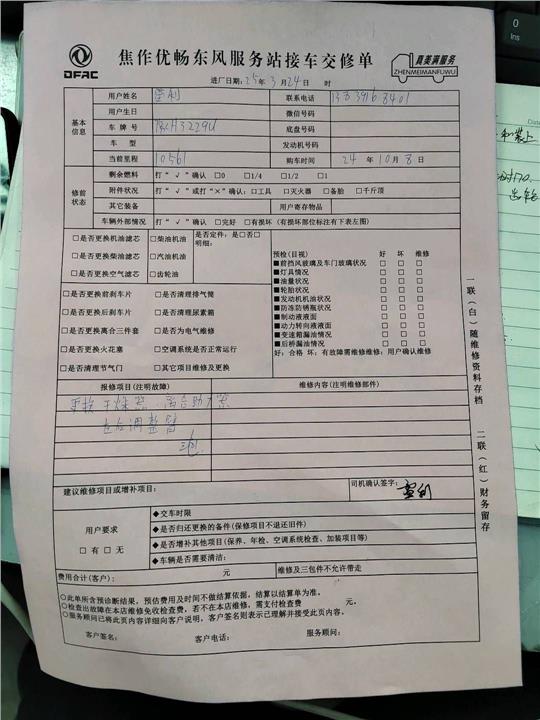 DFAC
焦作优畅东风服务站接车交修单
真美满服务
ZHENMEIMANFUWU
进厂日期：25年3月24日 时
基本信息
用户姓名
联系电话
用户生日 微信号码
车牌号 底盘号码
车型 发动机号码
当前里程 10561 购车时间 24年10月8日
修前状态
剩余燃料 打“√”确认 □0 □1/4 □1/2 □1
附件状况 打“√”或打“×”确认：□工具 □灭火器 □备胎 □千斤顶
其它装备 用户寄存物品
车辆外部情况 打“√”确认 □完好 □有损坏（有损坏部位标注有下表左图）
□是否更换机油滤芯 □柴油机油
□是否更换柴油滤芯 □汽油机油
□是否更换空气滤芯 □齿轮油
是否定件：是□否□
明细：
□是否更换前刹车片 □是否清理排气筒
□是否更换后刹车片 □是否清理尿素箱
□是否更换离合三件套 □是否为电气维修
□是否更换火花塞 □空调系统是否正常运行
□是否清理节气门 □其它项目维修及更换
预检（目视） 好 坏 维修
■前挡风玻璃及车门玻璃状况 □ □ □
■灯具情况 □ □ □
■油量状况 □ □ □
■轮胎状况 □ □ □
■发动机机油状况 □ □ □
■防冻防锈瓶状况 □ □ □
■制动液液面 □ □ □
■动力转向液液面 □ □ □
■变速箱漏油情况 □ □ □
■后桥漏油情况 □ □ □
好：合格 坏：有故障需维修维修：用户确认维修
报修项目（注明故障） 维修内容（注明维修部件）
更换干燥器 离合助力泵
左右调整臂
建议维修项目或增补项目：
司机确认签字：
用户要求
□有 □无
◆交车时限
◆是否归还更换的备件（保修项目不退还旧件）
◆是否增补其他项目（保养、年检、空调系统检查、加装项目等）
◆车辆是否需要清洁：
费用合计（客户）： 元 维修及三包件不允许带走
○此单所含预诊断结果，预估费用及时间不做结算依据，结算以结算单为准。
○检查出故障在本店维修免收检查费，若不在本店维修，需支付检查费 元。
○服务顾问已将此页内容详细向客户说明，客户签名则表示已理解并接受此页内容。
客户签名： 客户电话： 服务顾问：
一联（白）随维修资料存档
二联（红）财务留存
0
Ins